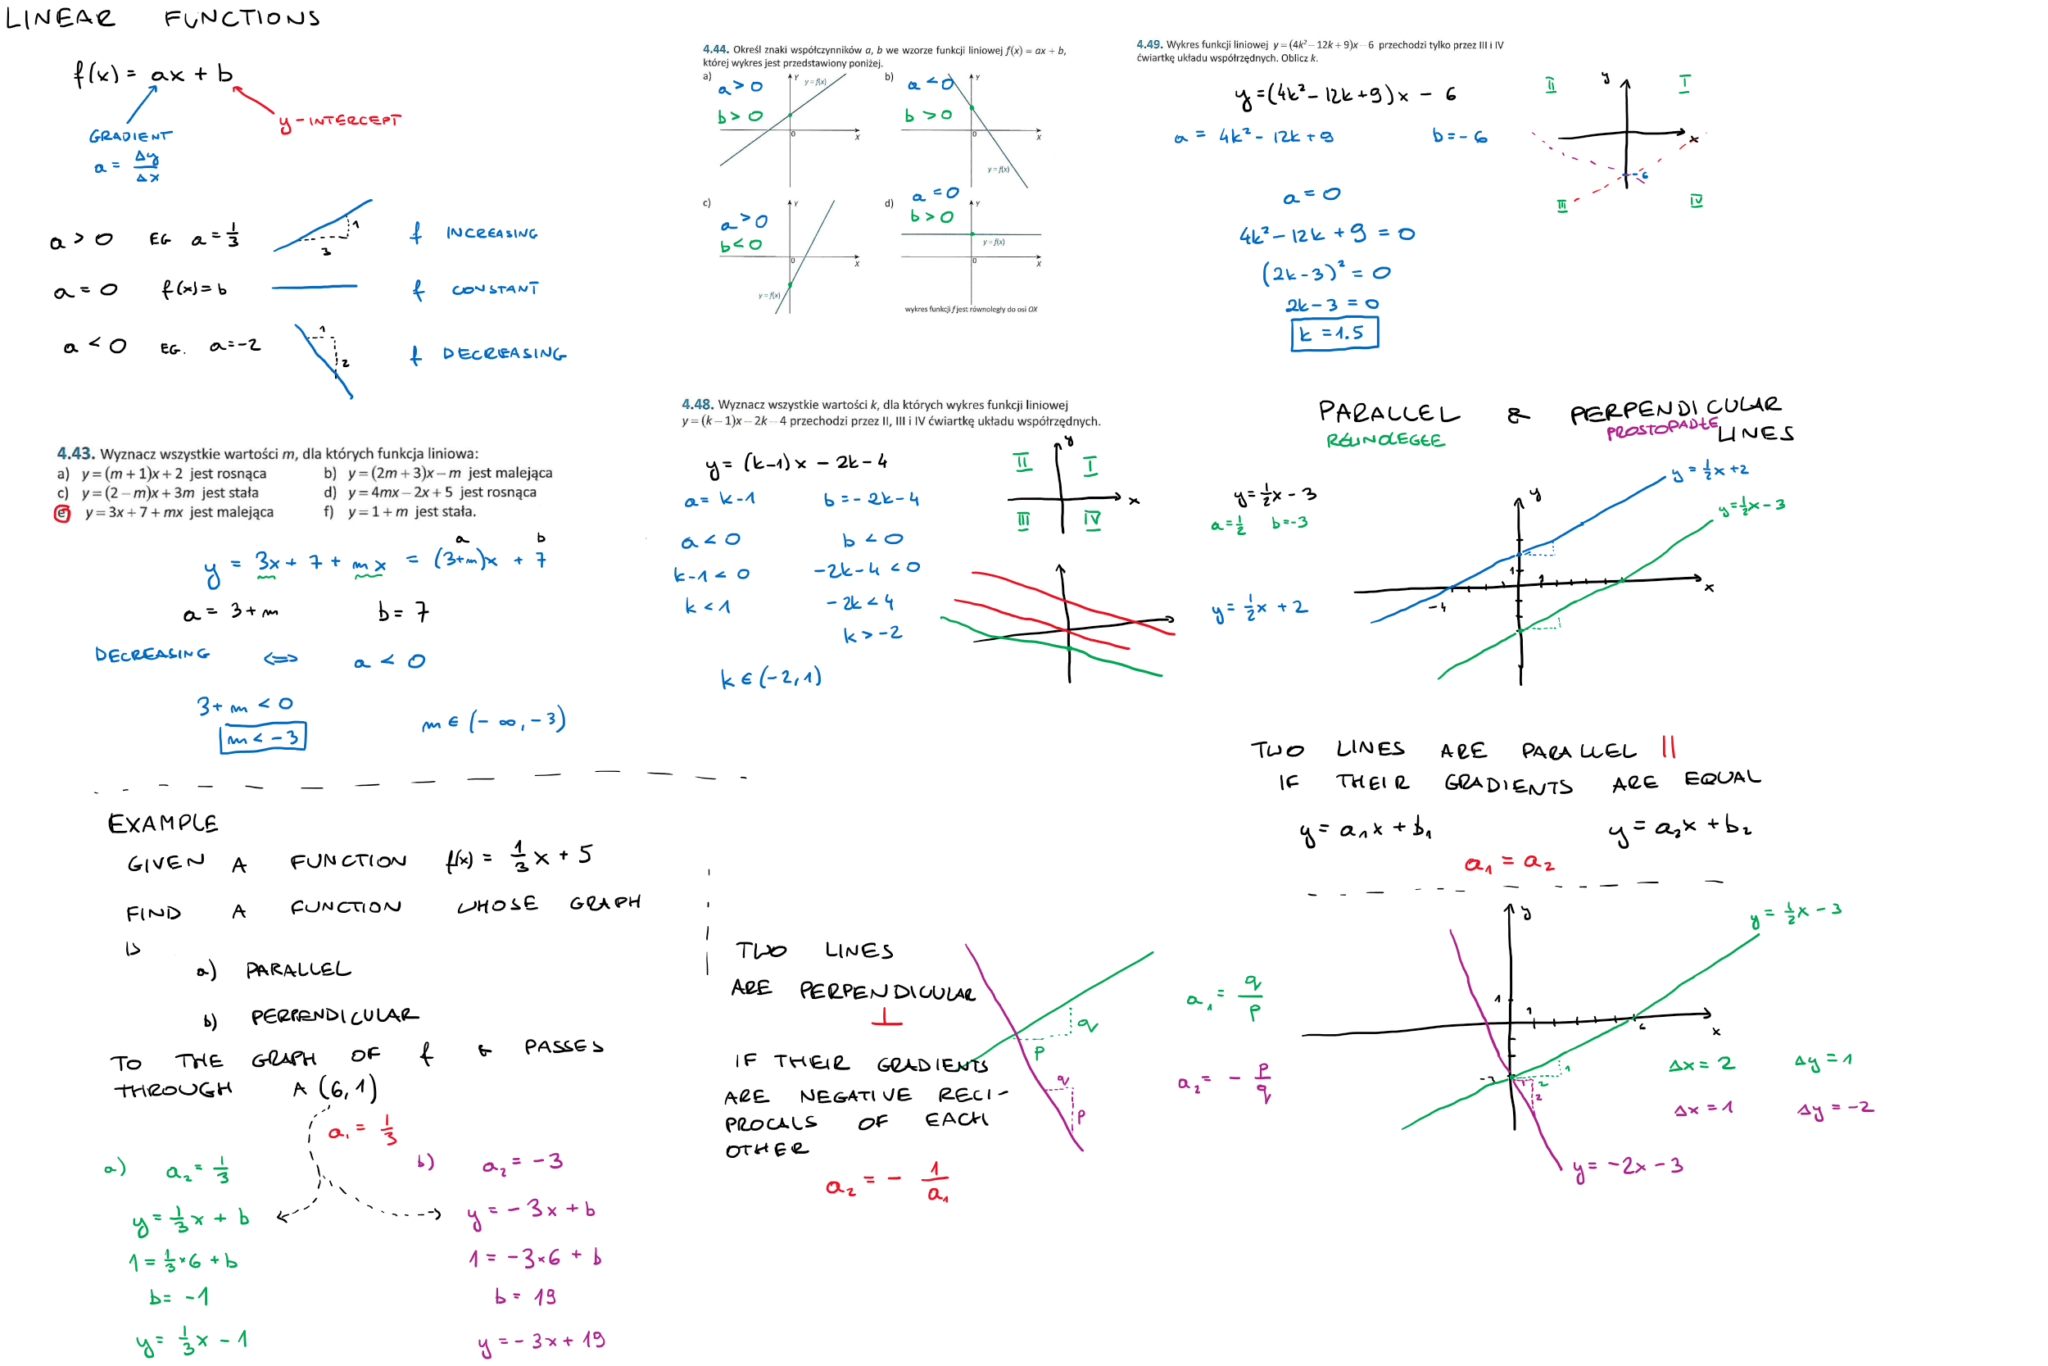 LINEAR FUNCTIONS
f(x) = ax + b
GRADIENT
a = Δy/Δx
y-INTERCEPT
a > 0 EG a = 1/3
3
1
f INCREASING
a = 0 f(x) = b
f CONSTANT
a < 0 EG. a = -2
1
2
f DECREASING
4.43. Wyznacz wszystkie wartości m, dla których funkcja liniowa:
a) y = (m + 1)x + 2 jest rosnąca b) y = (2m + 3)x − m jest malejąca
c) y = (2 − m)x + 3m jest stała d) y = 4mx − 2x + 5 jest rosnąca
e) y = 3x + 7 + mx jest malejąca f) y = 1 + m jest stała.
a b
y = 3x + 7 + mx = (3+m)x + 7
a = 3 + m b = 7
DECREASING ⇔ a < 0
3 + m < 0
m < -3
m ∈ (-∞, -3)
EXAMPLE
GIVEN A FUNCTION f(x) = 1/3 x + 5
FIND A FUNCTION WHOSE GRAPH
IS
a) PARALLEL
b) PERPENDICULAR
TO THE GRAPH OF f & PASSES
THROUGH A (6,1)
a₁ = 1/3
a) a₂ = 1/3
y = 1/3 x + b
1 = 1/3 × 6 + b
b = -1
y = 1/3 x - 1
b) a₂ = -3
y = -3x + b
1 = -3×6 + b
b = 19
y = -3x + 19
4.44. Określ znaki współczynników a, b we wzorze funkcji liniowej f(x) = ax + b,
której wykres jest przedstawiony poniżej.
a) a > 0
b > 0
Y
y = f(x)
0
X
b) a < 0
b > 0
Y
0
X
y = f(x)
c) a > 0
b < 0
Y
0
X
y = f(x)
d) a = 0
b > 0
Y
y = f(x)
0
X
wykres funkcji f jest równoległy do osi OX
4.48. Wyznacz wszystkie wartości k, dla których wykres funkcji liniowej
y = (k − 1)x − 2k − 4 przechodzi przez II, III i IV ćwiartkę układu współrzędnych.
y = (k-1)x - 2k - 4
a = k-1 b = -2k-4
a < 0 b < 0
k-1 < 0 -2k-4 < 0
k < 1 -2k < 4
k > -2
k ∈ (-2, 1)
y
II I
x
III IV
4.49. Wykres funkcji liniowej y = (4k² − 12k + 9)x − 6 przechodzi tylko przez III i IV
ćwiartkę układu współrzędnych. Oblicz k.
y = (4k² - 12k + 9)x - 6
a = 4k² - 12k + 9 b = -6
a = 0
4k² - 12k + 9 = 0
(2k-3)² = 0
2k - 3 = 0
k = 1.5
II y I
x
-6
III IV
PARALLEL & PERPENDICULAR
RÓWNOLEGŁE PROSTOPADŁE LINES
y = 1/2 x - 3
a = 1/2 b = -3
y = 1/2 x + 2
y = 1/2 x + 2
y = 1/2 x - 3
y
1
1
-4
x
TWO LINES ARE PARALLEL ||
IF THEIR GRADIENTS ARE EQUAL
y = a₁x + b₁ y = a₂x + b₂
a₁ = a₂
TWO LINES
ARE PERPENDICULAR
⊥
IF THEIR GRADIENTS
ARE NEGATIVE RECI-
PROCALS OF EACH
OTHER
a₂ = - 1/a₁
p
q
q
p
a₁ = q/p
a₂ = - p/q
y
y = 1/2 x - 3
1
1
6
x
-3
2
1
1
2
Δx = 2 Δy = 1
Δx = 1 Δy = -2
y = -2x - 3